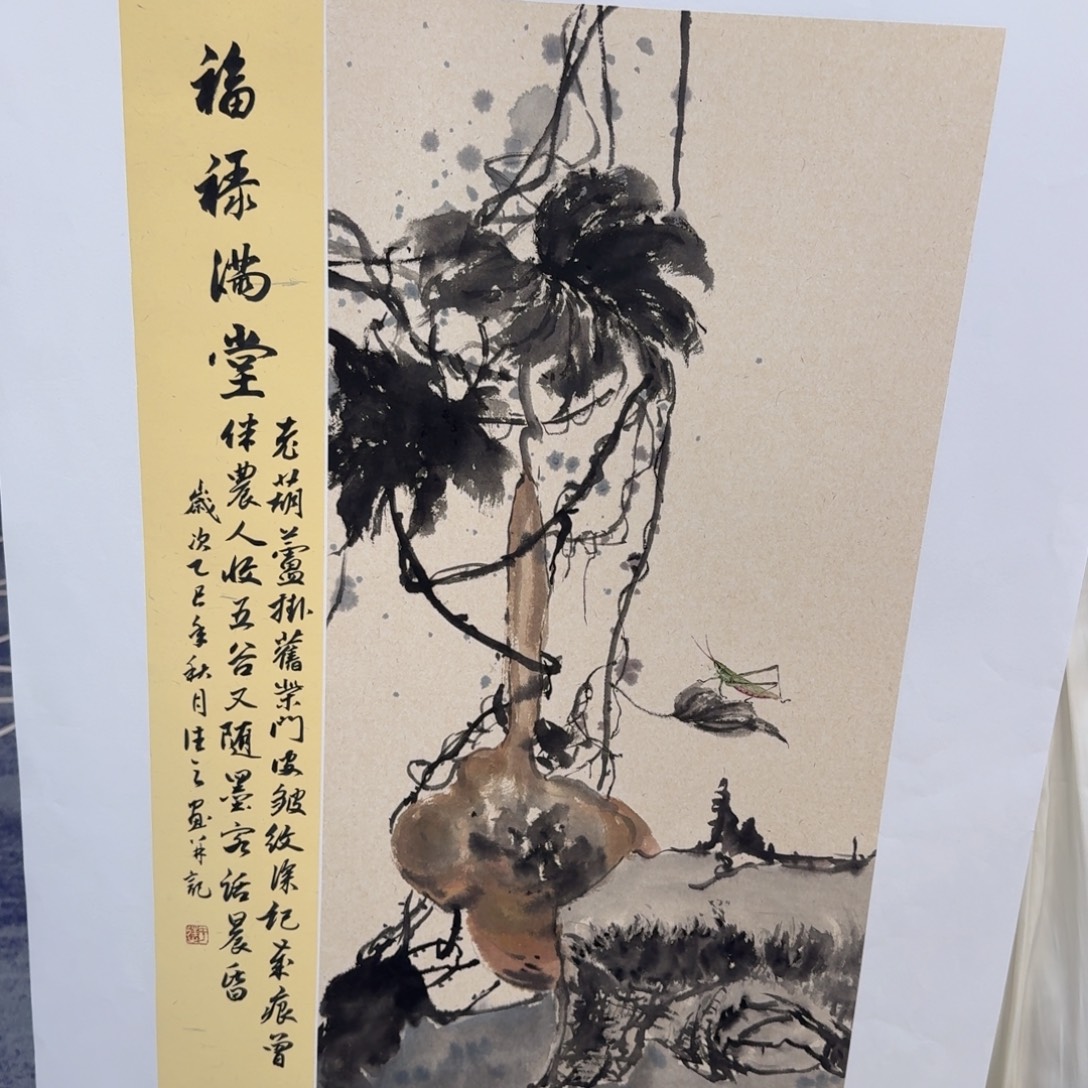 福禄满堂
老葫蘆掛舊柴門皮皺紋深紀痕曾
伴農人收五谷又随墨客話晨昏
歲次乙巳年秋月畫并記